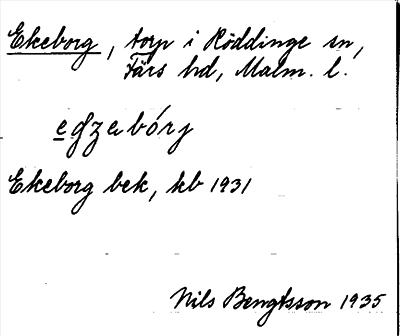 Ekeborg, torp i Röddinge sn,
Färs hd, Malm. l.
egzabórj
Ekeborg bek, kb 1931
Nils Bengtsson 1935